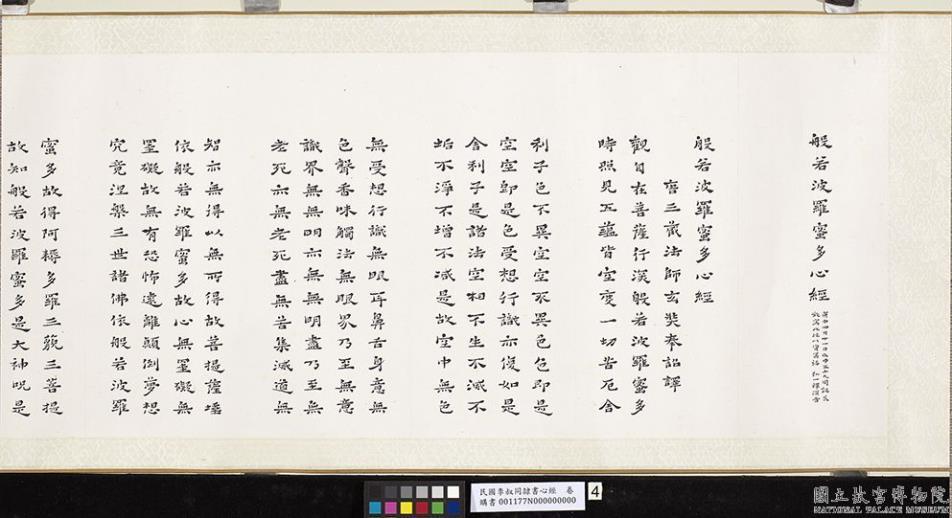 般若波羅蜜多心經
般若波羅蜜多心經
唐三藏法師玄奘奉詔譯
觀自在菩薩行深般若波羅蜜多
時照見五蘊皆空度一切苦厄舍
利子色不異空空不異色色即是
空空即是色受想行識亦復如是
舍利子是諸法空相不生不滅不
垢不淨不增不減是故空中無色
無受想行識無眼耳鼻舌身意無
色聲香味觸法無眼界乃至無意
識界無無明亦無無明盡乃至無
老死亦無老死盡無苦集滅道無
智亦無得以無所得故菩提薩埵
依般若波羅蜜多故心無罣礙無
罣礙故無有恐怖遠離顛倒夢想
究竟涅槃三世諸佛依般若波羅
蜜多故得阿耨多羅三藐三菩提
故知般若波羅蜜多是大神咒是
民國李叔同隸書心經 卷
購書 001177N000000000
4
國立故宮博物院
NATIONAL PALACE MUSEUM